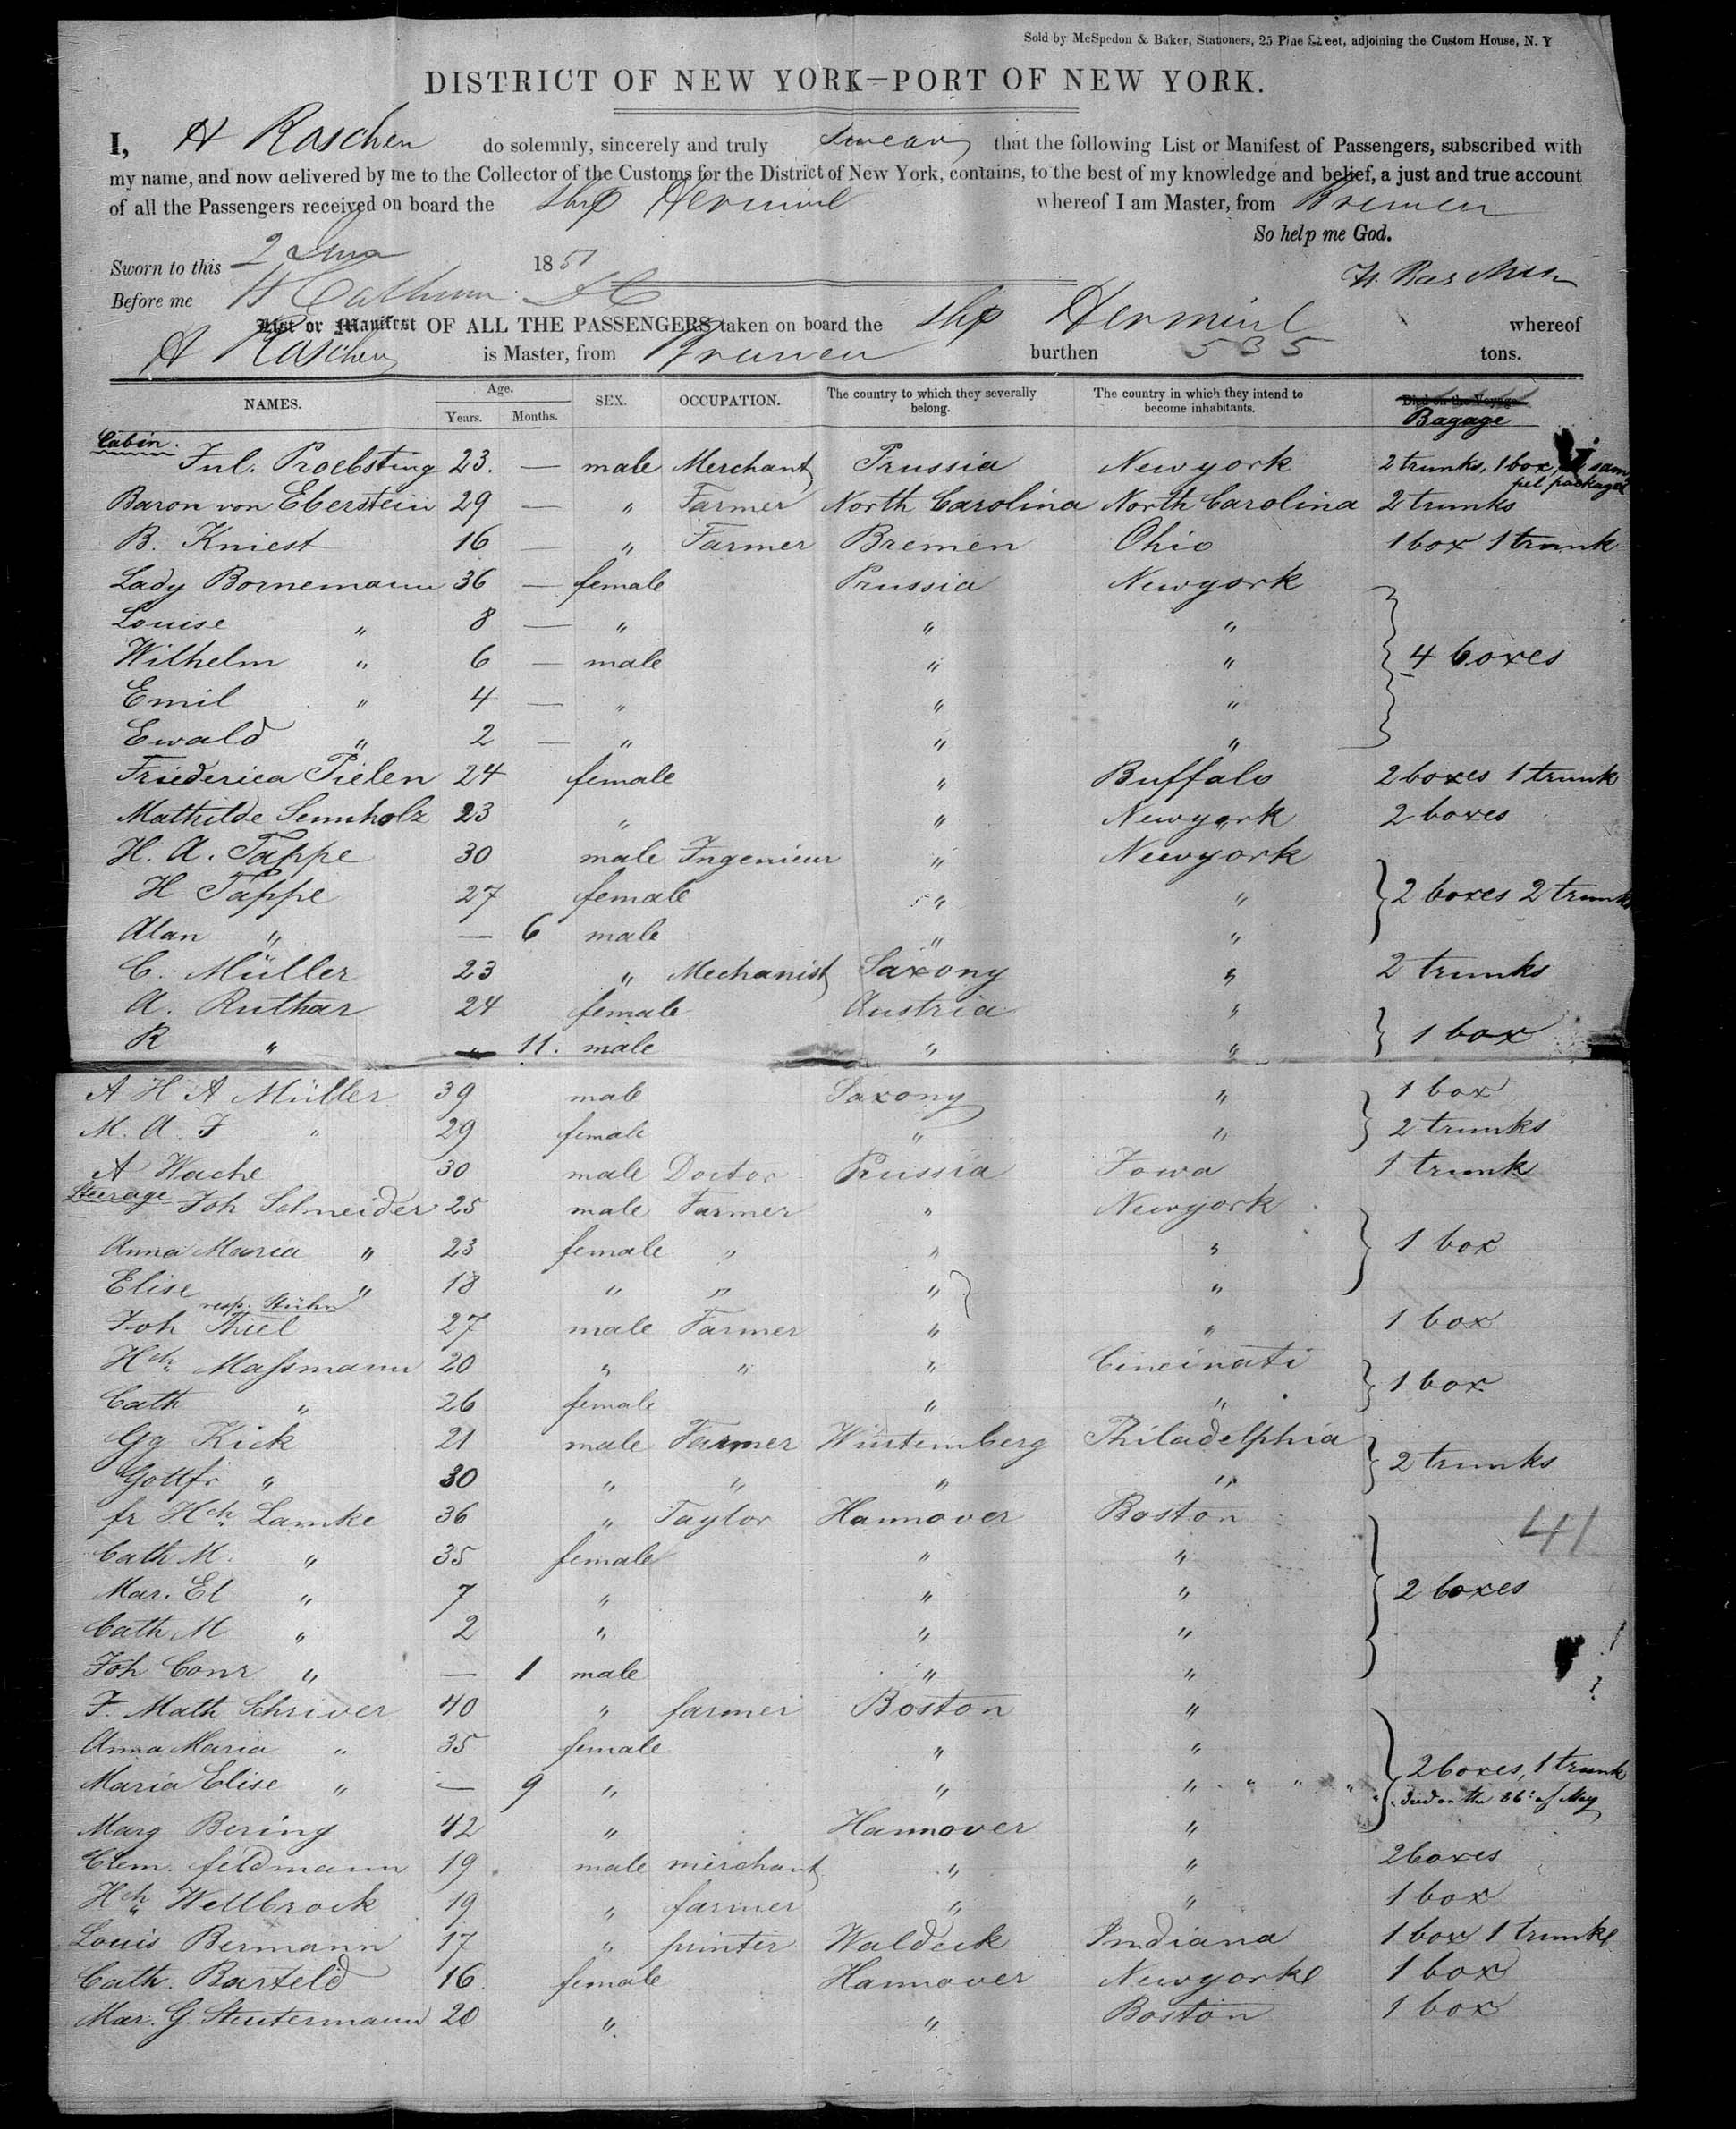 Sold by McSpedon & Baker, Stationers, 25 Pine Street, adjoining the Custom House, N. Y
DISTRICT OF NEW YORK—PORT OF NEW YORK.
I, H Raschen do solemnly, sincerely and truly swear that the following List or Manifest of Passengers, subscribed with
my name, and now delivered by me to the Collector of the Customs for the District of New York, contains, to the best of my knowledge and belief, a just and true account
of all the Passengers received on board the ship Hermine whereof I am Master, from Bremen
So help me God.
Sworn to this 2 June 1851
H. Raschen
Before me
List or Manifest OF ALL THE PASSENGERS taken on board the ship Hermine whereof
H Raschen is Master, from Bremen burthen 535 tons.
NAMES. Age. Years. Months. SEX. OCCUPATION. The country to which they severally belong. The country in which they intend to become inhabitants. Died on the Voyage Bagage
Cabin.
Jul. Proebsting 23. — male Merchant Prussia Newyork 2 trunks, 1 box, sam
pel packages
Baron von Eberstein 29 — " Farmer North Carolina North Carolina 2 trunks
B. Kniest 16 — " Farmer Bremen Ohio 1 box 1 trunk
Lady Bornemann 36 — female Prussia Newyork
Louise " 8 — " " "
Wilhelm " 6 — male " " 4 boxes
Emil " 4 — " " "
Ewald " 2 — " " "
Friederica Pielen 24 female " Buffalo 2 boxes 1 trunk
Mathilde Sennholz 23 " " Newyork 2 boxes
H. A. Tappe 30 male Ingenieur " Newyork
H Tappe 27 female " " 2 boxes 2 trunks
Alan " — 6 male " "
C. Müller 23 " Mechanist Saxony " 2 trunks
A. Ruthar 24 female Austria "
R " " 11. male " " 1 box
A H A Müller 39 male Saxony " 1 box
M. A. F " 29 female " " 2 trunks
A Wache 30 male Doctor Prussia Iowa 1 trunk
Steerage Joh Schneider 25 male Farmer " Newyork
Anna Maria " 23 female " " " 1 box
Elise " 18 " " " "
resp. Stühn
Joh Thiel 27 male Farmer " " 1 box
Hch. Maſsmann 20 " " " Cincinati
Cath " 26 female " " 1 box
Gg Kick 21 male Farmer Wirtemberg Philadelphia
Gottfr " 30 " " " " 2 trunks
fr Hch. Lamke 36 " Taylor Hannover Boston
41
Cath M. " 35 female " "
Mar. El " 7 " " " 2 boxes
Cath M " 2 " " "
Joh Conr " — 1 male " "
F. Math Schriver 40 " farmer Boston "
Anna Maria " 35 female " "
2 boxes, 1 trunk
Maria Elise " — 9 " " " " " " died on the 26t of May
Marg Bering 42 " Hannover "
Clem. feldmann 19 male merchant " " 2 boxes
Hch. Wellbrock 19 " farmer " " 1 box
Louis Bermann 17 " printer Waldeck Indiana 1 box 1 trunk
Cath. Barteld 16. female Hannover Newyork 1 box
Mar. G. Steutermann 20 " " Boston 1 box